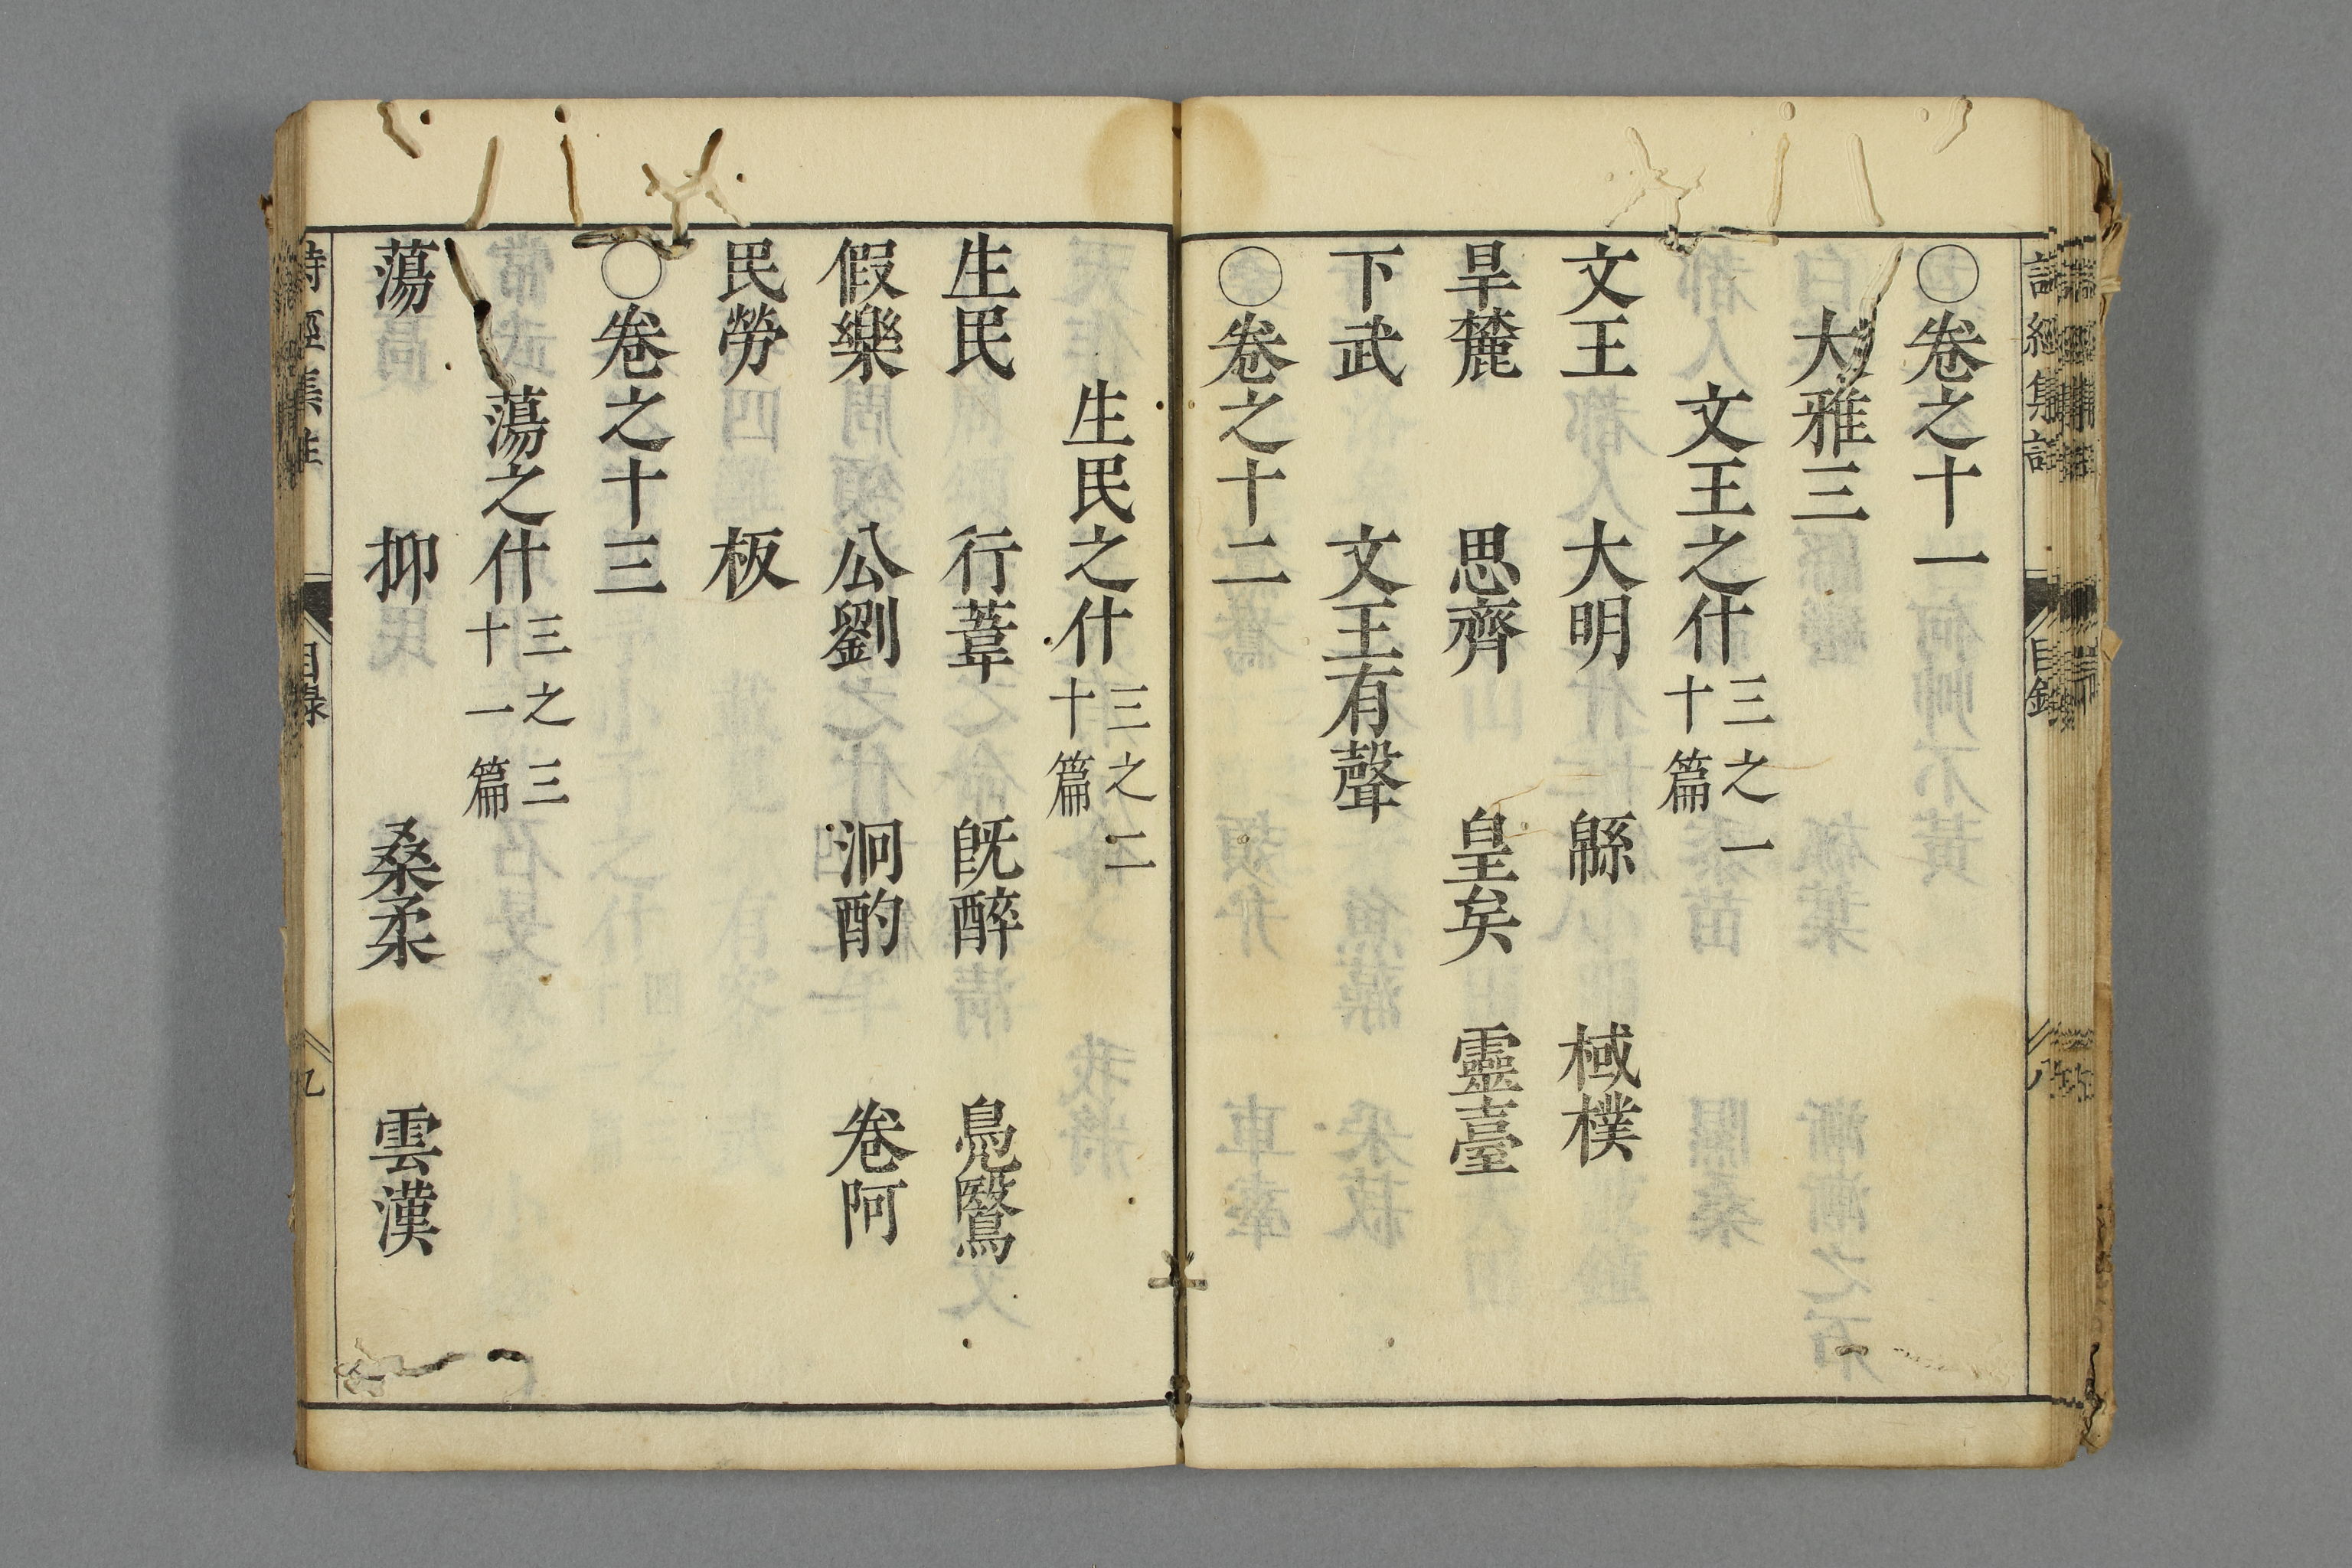 ○卷之十一
大雅三
文王之什 三之一 十篇
文王 大明 緜 棫樸
旱麓 思齊 皇矣 靈臺
下武 文王有聲
○卷之十二
生民之什 三之二 十篇
生民 行葦 旣醉 鳧鷖
假樂 公劉 泂酌 卷阿
民勞 板
○卷之十三
蕩之什 三之三 十一篇
蕩 抑 桑柔 雲漢
詩經集註 目錄 九